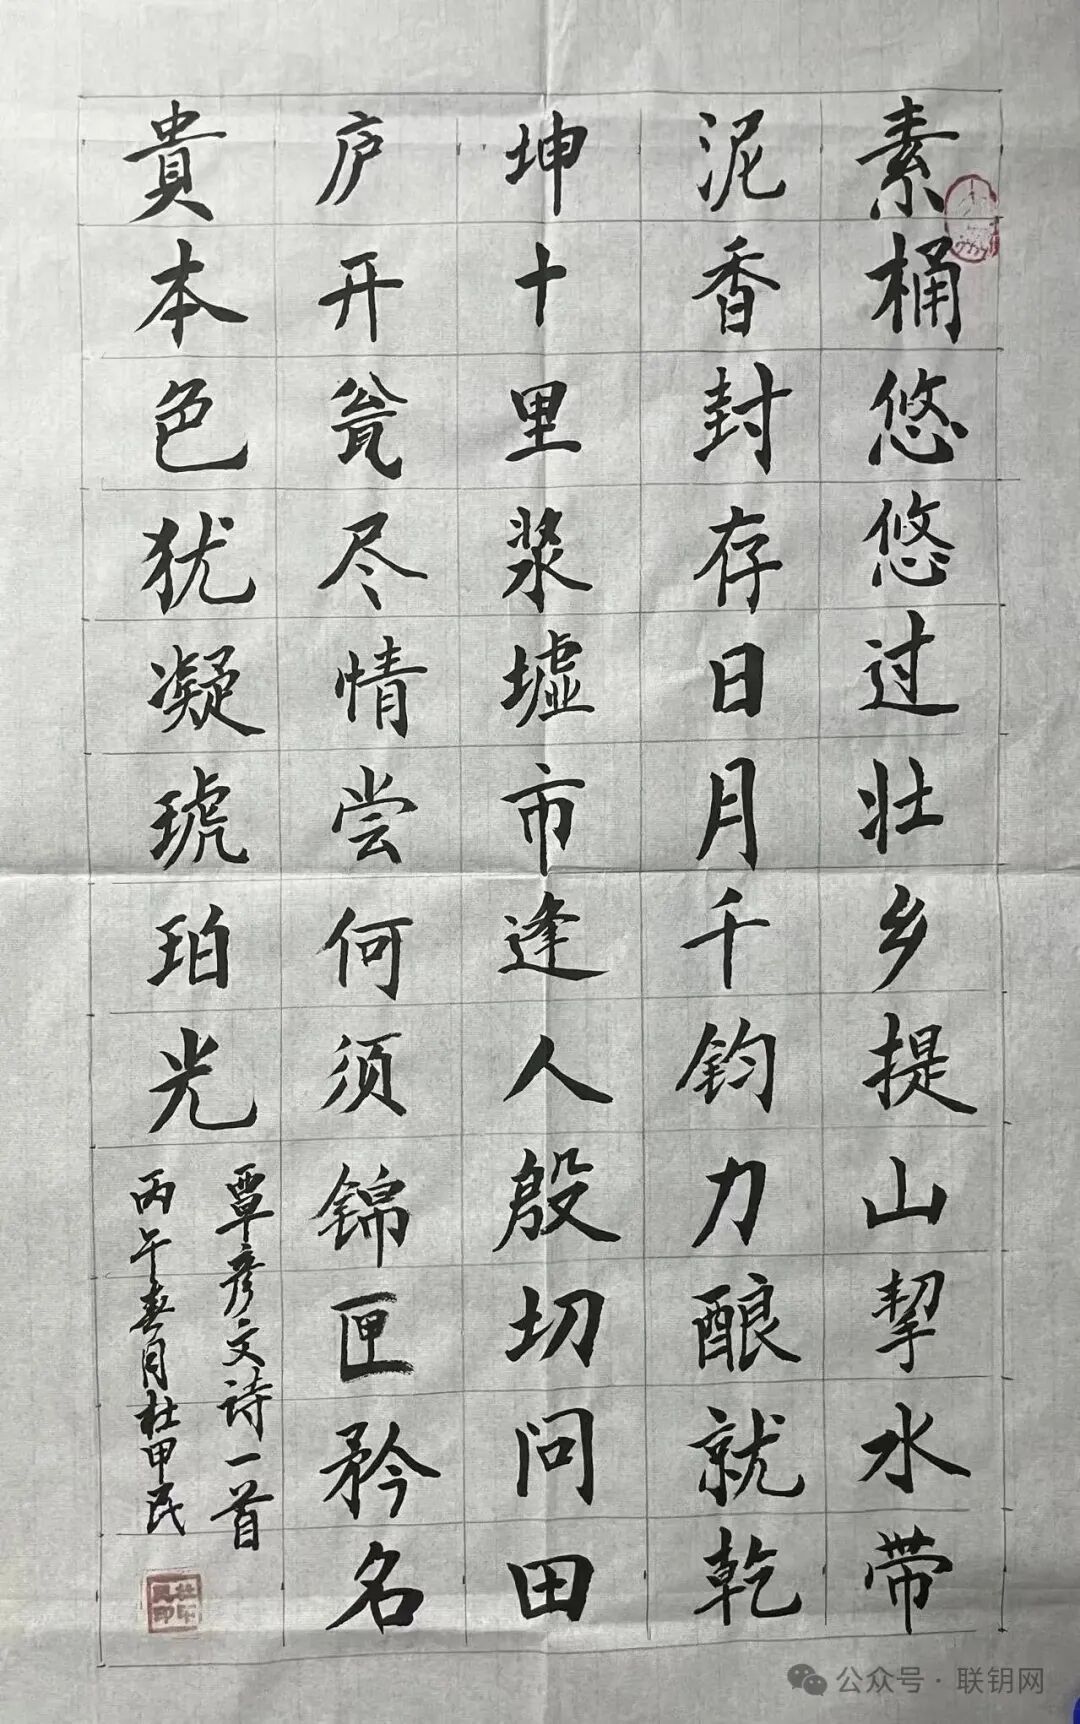 素桶悠悠过壮乡提山挈水带
泥香封存日月千钧力酿就乾
坤十里浆墟市逢人殷切问田
庐开瓮尽情尝何须锦匣矜名
貴本色犹凝琥珀光
覃彦文诗一首
丙午春月杜甲民
公众号·联钥网